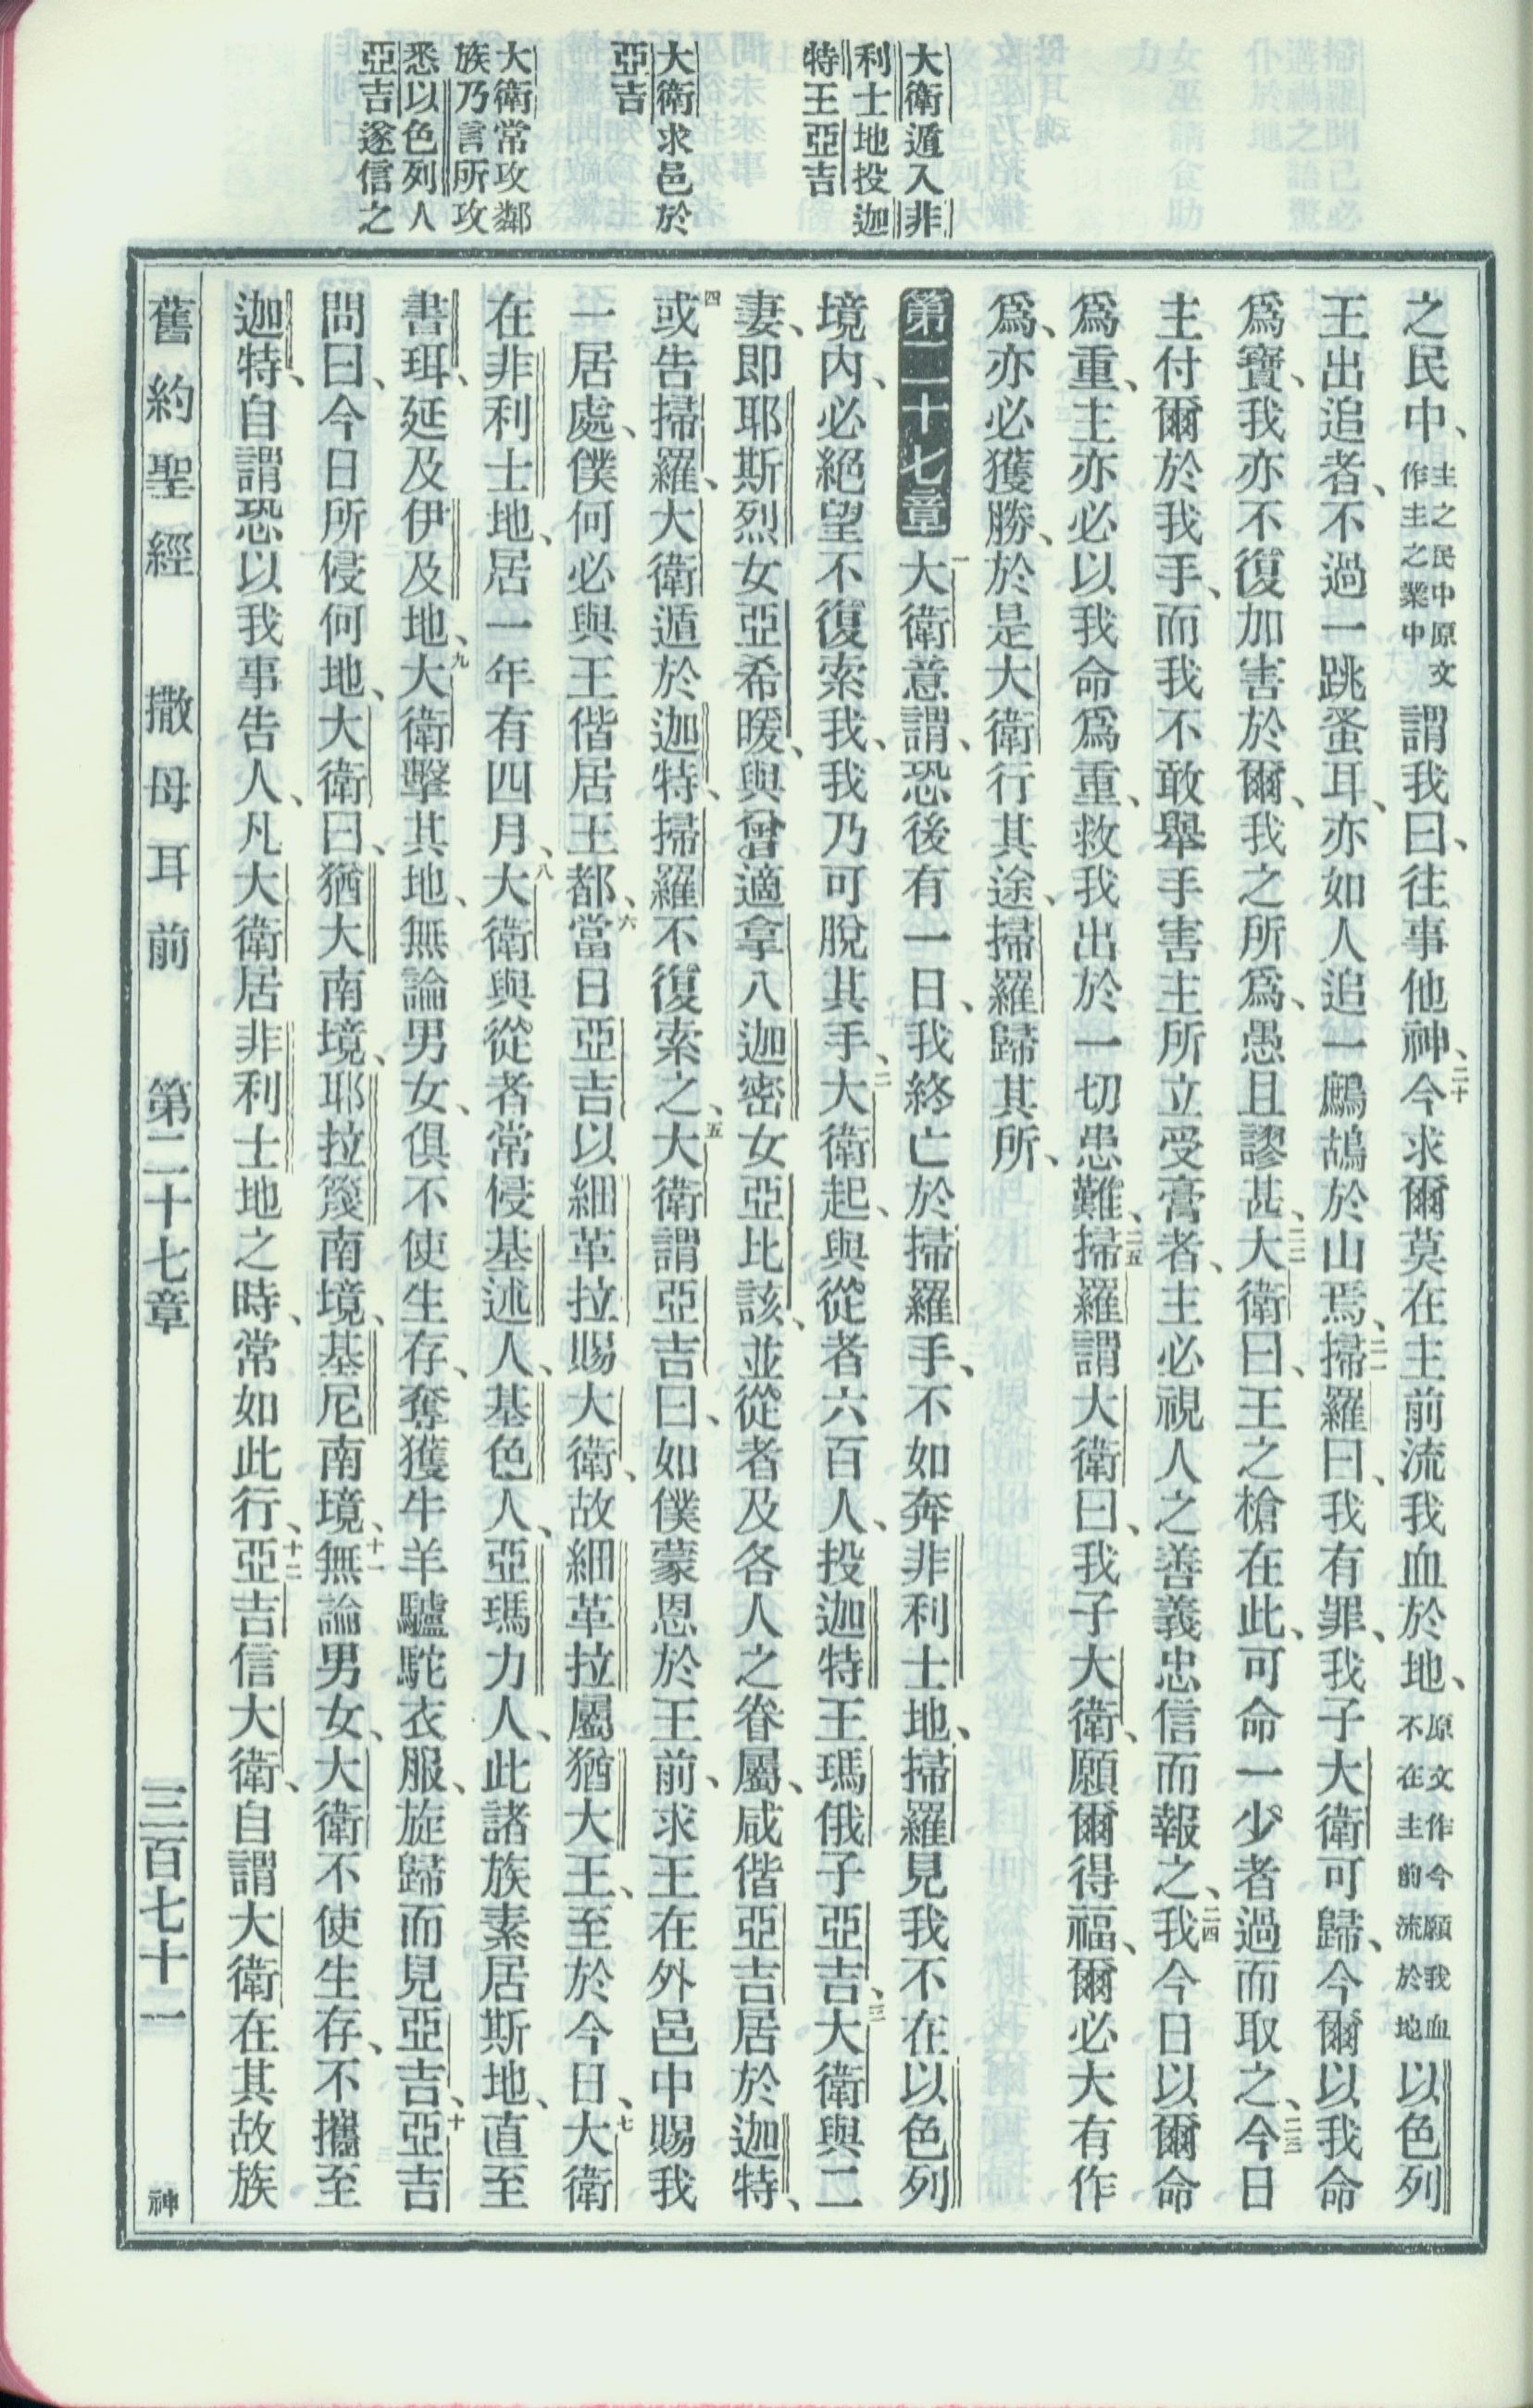 大衛遁入非
利士地投迦
特王亞吉
大衛求邑於
亞吉
大衛常攻鄰
族乃言所攻
悉以色列人
亞吉遂信之
之民中、主之民中原文作主之業中謂我曰、往事他神、二十今求爾莫在主前流我血於地、原文作今願我血不在主前流於地以色列
王出追者、不過一跳蚤耳、亦如人追一鷓鴣於山焉、二一掃羅曰、我有罪、我子大衛可歸、今爾以我命
爲寶、我亦不復加害於爾、我之所爲、愚且謬甚、二二大衛曰、王之槍在此、可命一少者過而取之、二三今日
主付爾於我手、而我不敢舉手害主所立受膏者、主必視人之善義忠信而報之、二四我今日以爾命
爲重、主亦必以我命爲重、救我出於一切患難、二五掃羅謂大衛曰、我子大衛、願爾得福、爾必大有作
爲、亦必獲勝、於是大衛行其途、掃羅歸其所、
第二十七章 一大衛意謂、恐後有一日、我終亡於掃羅手、不如奔非利士地、掃羅見我不在以色列
境內、必絕望不復索我、我乃可脫其手、二大衛起、與從者六百人、投迦特王瑪俄子亞吉、三大衛與二
妻、即耶斯烈女亞希暖、與曾適拿八迦密女亞比該、並從者及各人之眷屬、咸偕亞吉居於迦特、
四或告掃羅、大衛遁於迦特、掃羅不復索之、五大衛謂亞吉曰、如僕蒙恩於王前、求王在外邑中賜我
一居處、僕何必與王偕居王都、六當日亞吉以細革拉賜大衛、故細革拉屬猶大王、至於今日、七大衛
在非利士地、居一年有四月、八大衛與從者常侵基述人、基色人、亞瑪力人、此諸族素居斯地、直至
書珥、延及伊及地、九大衛擊其地、無論男女、俱不使生存、奪獲牛羊驢駝衣服、旋歸而見亞吉、十亞吉
問曰、今日所侵何地、大衛曰、猶大南境、耶拉篾南境、基尼南境、十一無論男女、大衛不使生存、不攜至
迦特、自謂恐以我事告人、凡大衛居非利士地之時、常如此行、十二亞吉信大衛、自謂大衛在其故族
舊約聖經 撒母耳前 第二十七章 三百七十一 神